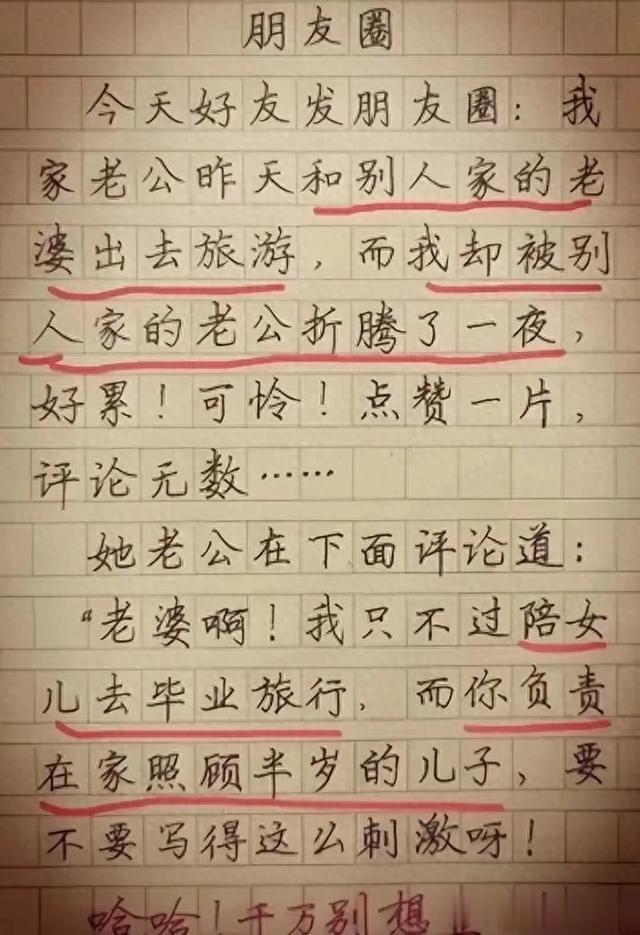 朋友圈
今天好友发朋友圈：我
家老公昨天和别人家的老
婆出去旅游，而我却被别
人家的老公折腾了一夜，
好累！可怜！点赞一片，
评论无数……
她老公在下面评论道：
“老婆啊！我只不过陪女
儿去毕业旅行，而你负责
在家照顾半岁的儿子，要
不要写得这么刺激呀！
哈哈！千万别想